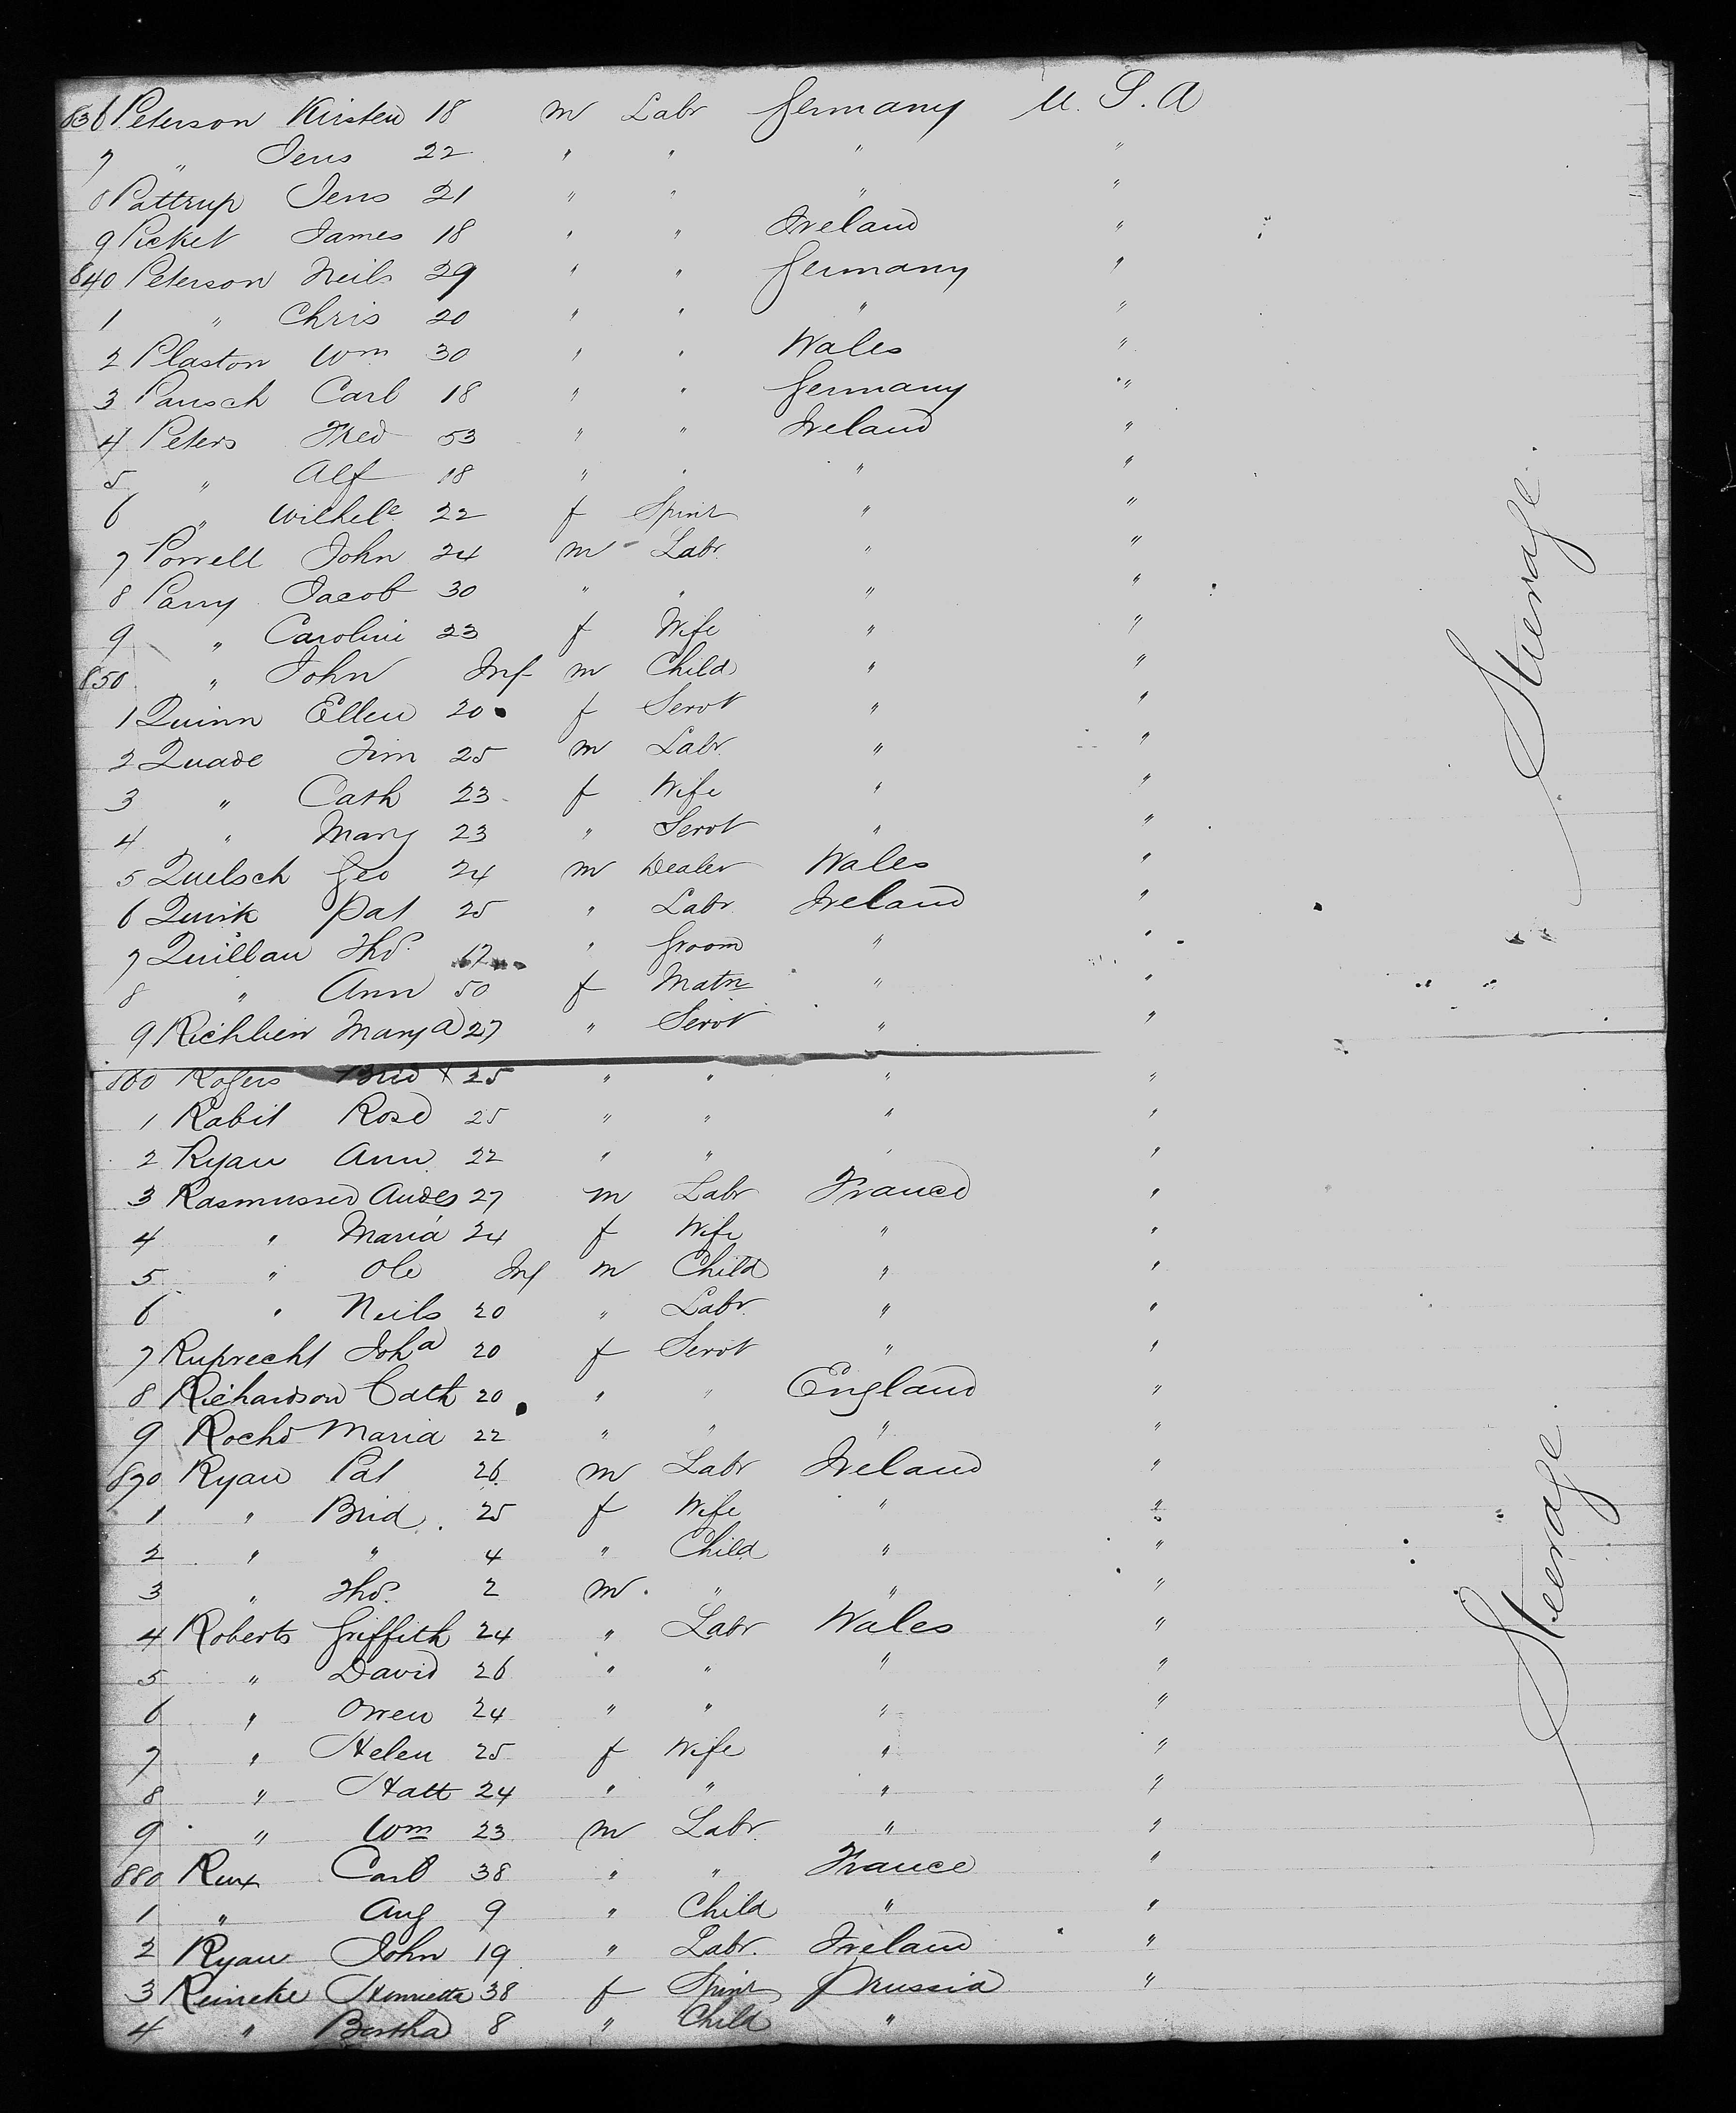 836 Peterson Kirsten 18 m Labr Germany U.S.A
7 " Jens 22 " " " "
8 Pattrup Jens 21 " " " "
9 Picket James 18 " " Ireland "
840 Peterson Neils 29 " " Germany "
1 " Chris 20 " " " "
2 Plaston Wm 30 " " Wales "
3 Pansch Carl 18 " " Germany "
4 Peters Fred 53 " " Ireland "
5 " Alf 18 " " " "
6 " Wilhele 22 f Spinr " "
7 Powell John 24 m Labr " "
8 Parry Jacob 30 " " " "
9 " Caroline 23 f Wife " "
850 " John Inf m Child " "
1 Quinn Ellen 20 f Servt " "
2 Quade Jim 25 m Labr " "
3 " Cath 23 f Wife " "
4 " Mary 23 " Servt " "
5 Quelsch Geo 24 m Dealer Wales "
6 Quirk Pat 25 " Labr Ireland "
7 Quillan Thos. 17 " Groom " "
8 " Ann 50 f Matn " "
9 Richlien Mary A 27 " Servt " "
860 Rogers Brid X 25 " " " "
1 Rabit Rose 25 " " " "
2 Ryan Ann 22 " " " "
3 Rasmussen Andes 27 m Labr France "
4 " Maria 24 f Wife " "
5 " Ole Inf m Child " "
6 " Neils 20 " Labr " "
7 Ruprecht Joha 20 f Servt " "
8 Richardson Cath 20 " " England "
9 Roche Maria 22 " " " "
870 Ryan Pat 26 m Labr Ireland "
1 " Brid 25 f Wife " "
2 " " 4 " Child " "
3 " Thos. 2 m " " "
4 Roberts Griffith 24 " Labr Wales "
5 " David 26 " " " "
6 " Owen 24 " " " "
7 " Helen 25 f Wife " "
8 " Hatt 24 " " " "
9 " Wm 23 m Labr " "
880 Rux Carl 38 " " France "
1 " Aug 9 " Child " "
2 Ryan John 19 " Labr. Ireland "
3 Reineke Henrietta 38 f Spinr Prussia "
4 " Bertha 8 " Child "
Steerage.
Steerage.